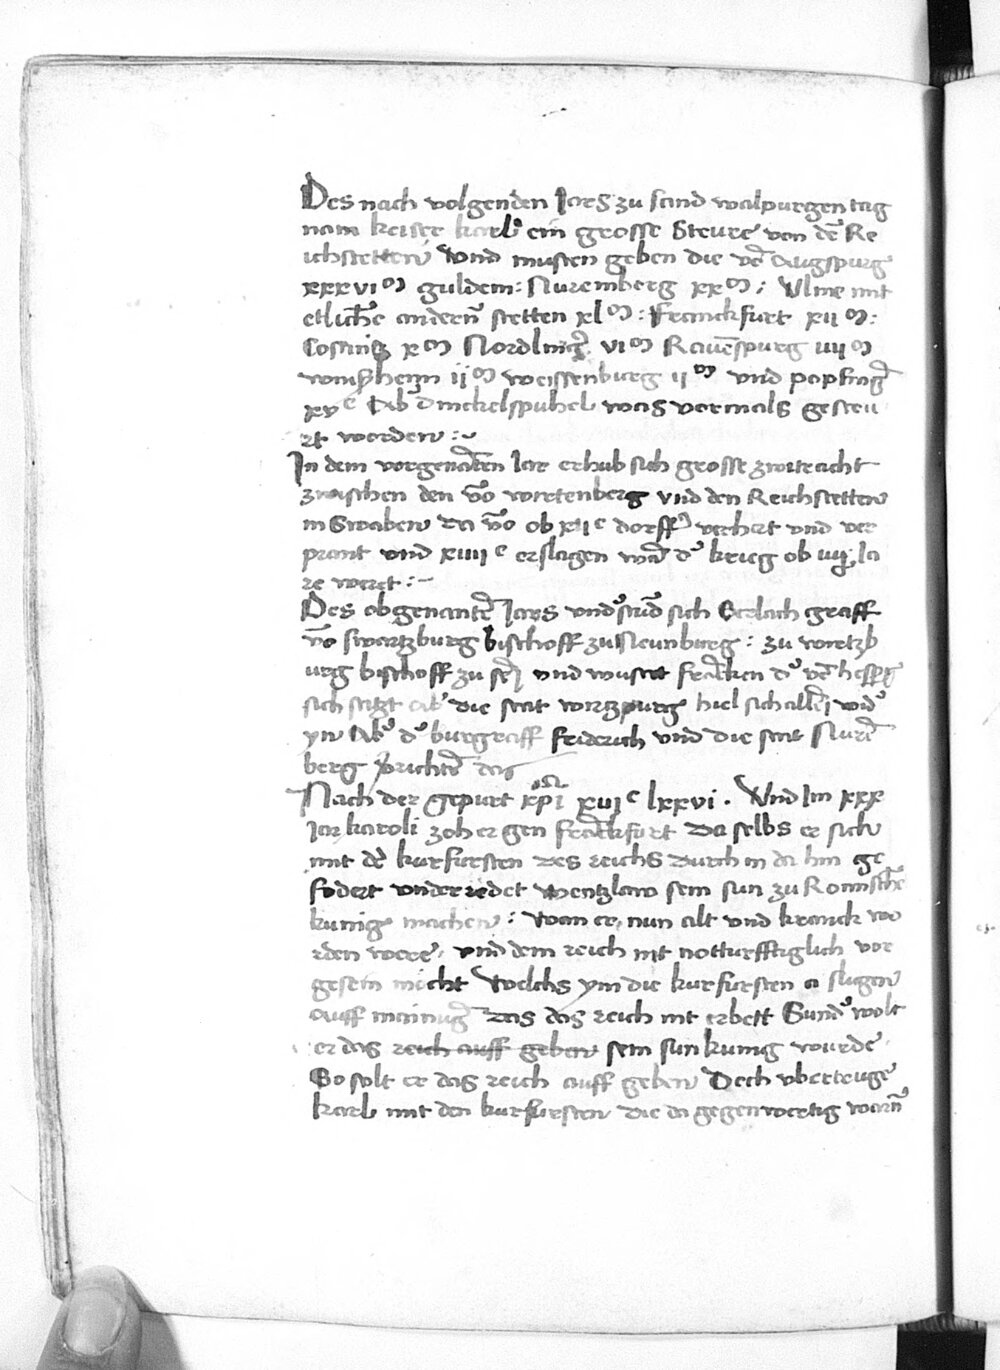 Des nach volgenden Jars zu sand walpurgen tag
nam keiser karl ein grosse Steure von dē Re
ichstetten Vnd musten geben die vō Augspurg
xxxvi m guldein : Nuremberg xx m : Vlme mit
etlichē andern stetten xl m : Franckfurt xii m :
Costnitz x m Nordling vi m Rauēspurg iiii m
wintzheim ii m weissenburg ii m vnd popfing
xv c Ab dinckelspuhel was vormals gesteu
rt worden :~
In dem vorgenāten Jar erhub sich grosse zwitracht
zwischen den vō wirtenberg vnd den Reichstetten
in Swaben da vō ob xii c dorff verhert vnd ver
prant vnd xiiii c erslagen d krieg ob iiij Ja
re weret :~
Des obgenantē Jars sich Gerlach graff
vō swartzburg bischoff zu Neunburg : zu wirtzb
urg bischoff zu sein vnd must Francken
sich setzt ab die stat wirtzpurg hiel sich allein wid
yn Ab d burgraff friderich vnd die stat Nurē
berg das
Nach der gepurt xpi xiij c lxxvi . Vnd Im xxx
Jar karoli zoh er gen franckfurt Da selbs er sich
mit dē kurfursten des reichs durch in da hin ge
fodert vnderredet wentzlaw sein sun zu Romischē
kunig machen : Wan er nun alt vnd kranck wo
rden were , vnd dem reich nit notturfftiglich vor
gesein mocht Welchs ym die kurfursten a slugen
Auff mainūg Das das reich nit erbett Sund wolt
er das reich auff geben sein sun kunig wurde
So solt er das reich auff geben Doch vberteuge
karl mit den kurfursten die da gegenwertig warn